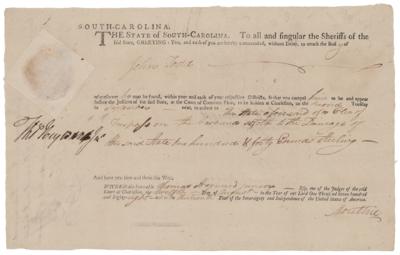 SOUTH-CAROLINA.
THE STATE OF SOUTH-CAROLINA. To all and singular the Sheriffs of the
said State, GREETING: You, and each of you are hereby commanded, without Delay, to attach the Body of
John
wheresoever he may be found, within your and each of your respective Districts, so that you compel him to be and appear
before the Justices of the said State, at the Court of Common Pleas, to be holden at Charleston, on the second Tuesday
in to answer to the State aforesaid of a Plea of
Trespass on the to the Damage of
the said State two hundred & forty Pounds Sterling
And have you then and there this Writ.
WITNESS the honorable Thomas Heyward junior Esq. one of the Judges of the said
Court at Charleston, the Day of August in the Year of our Lord One Thousand Seven hundred
and Eighty eight and in the thirteenth Year of the Sovereignty and Independence of the United States of America.